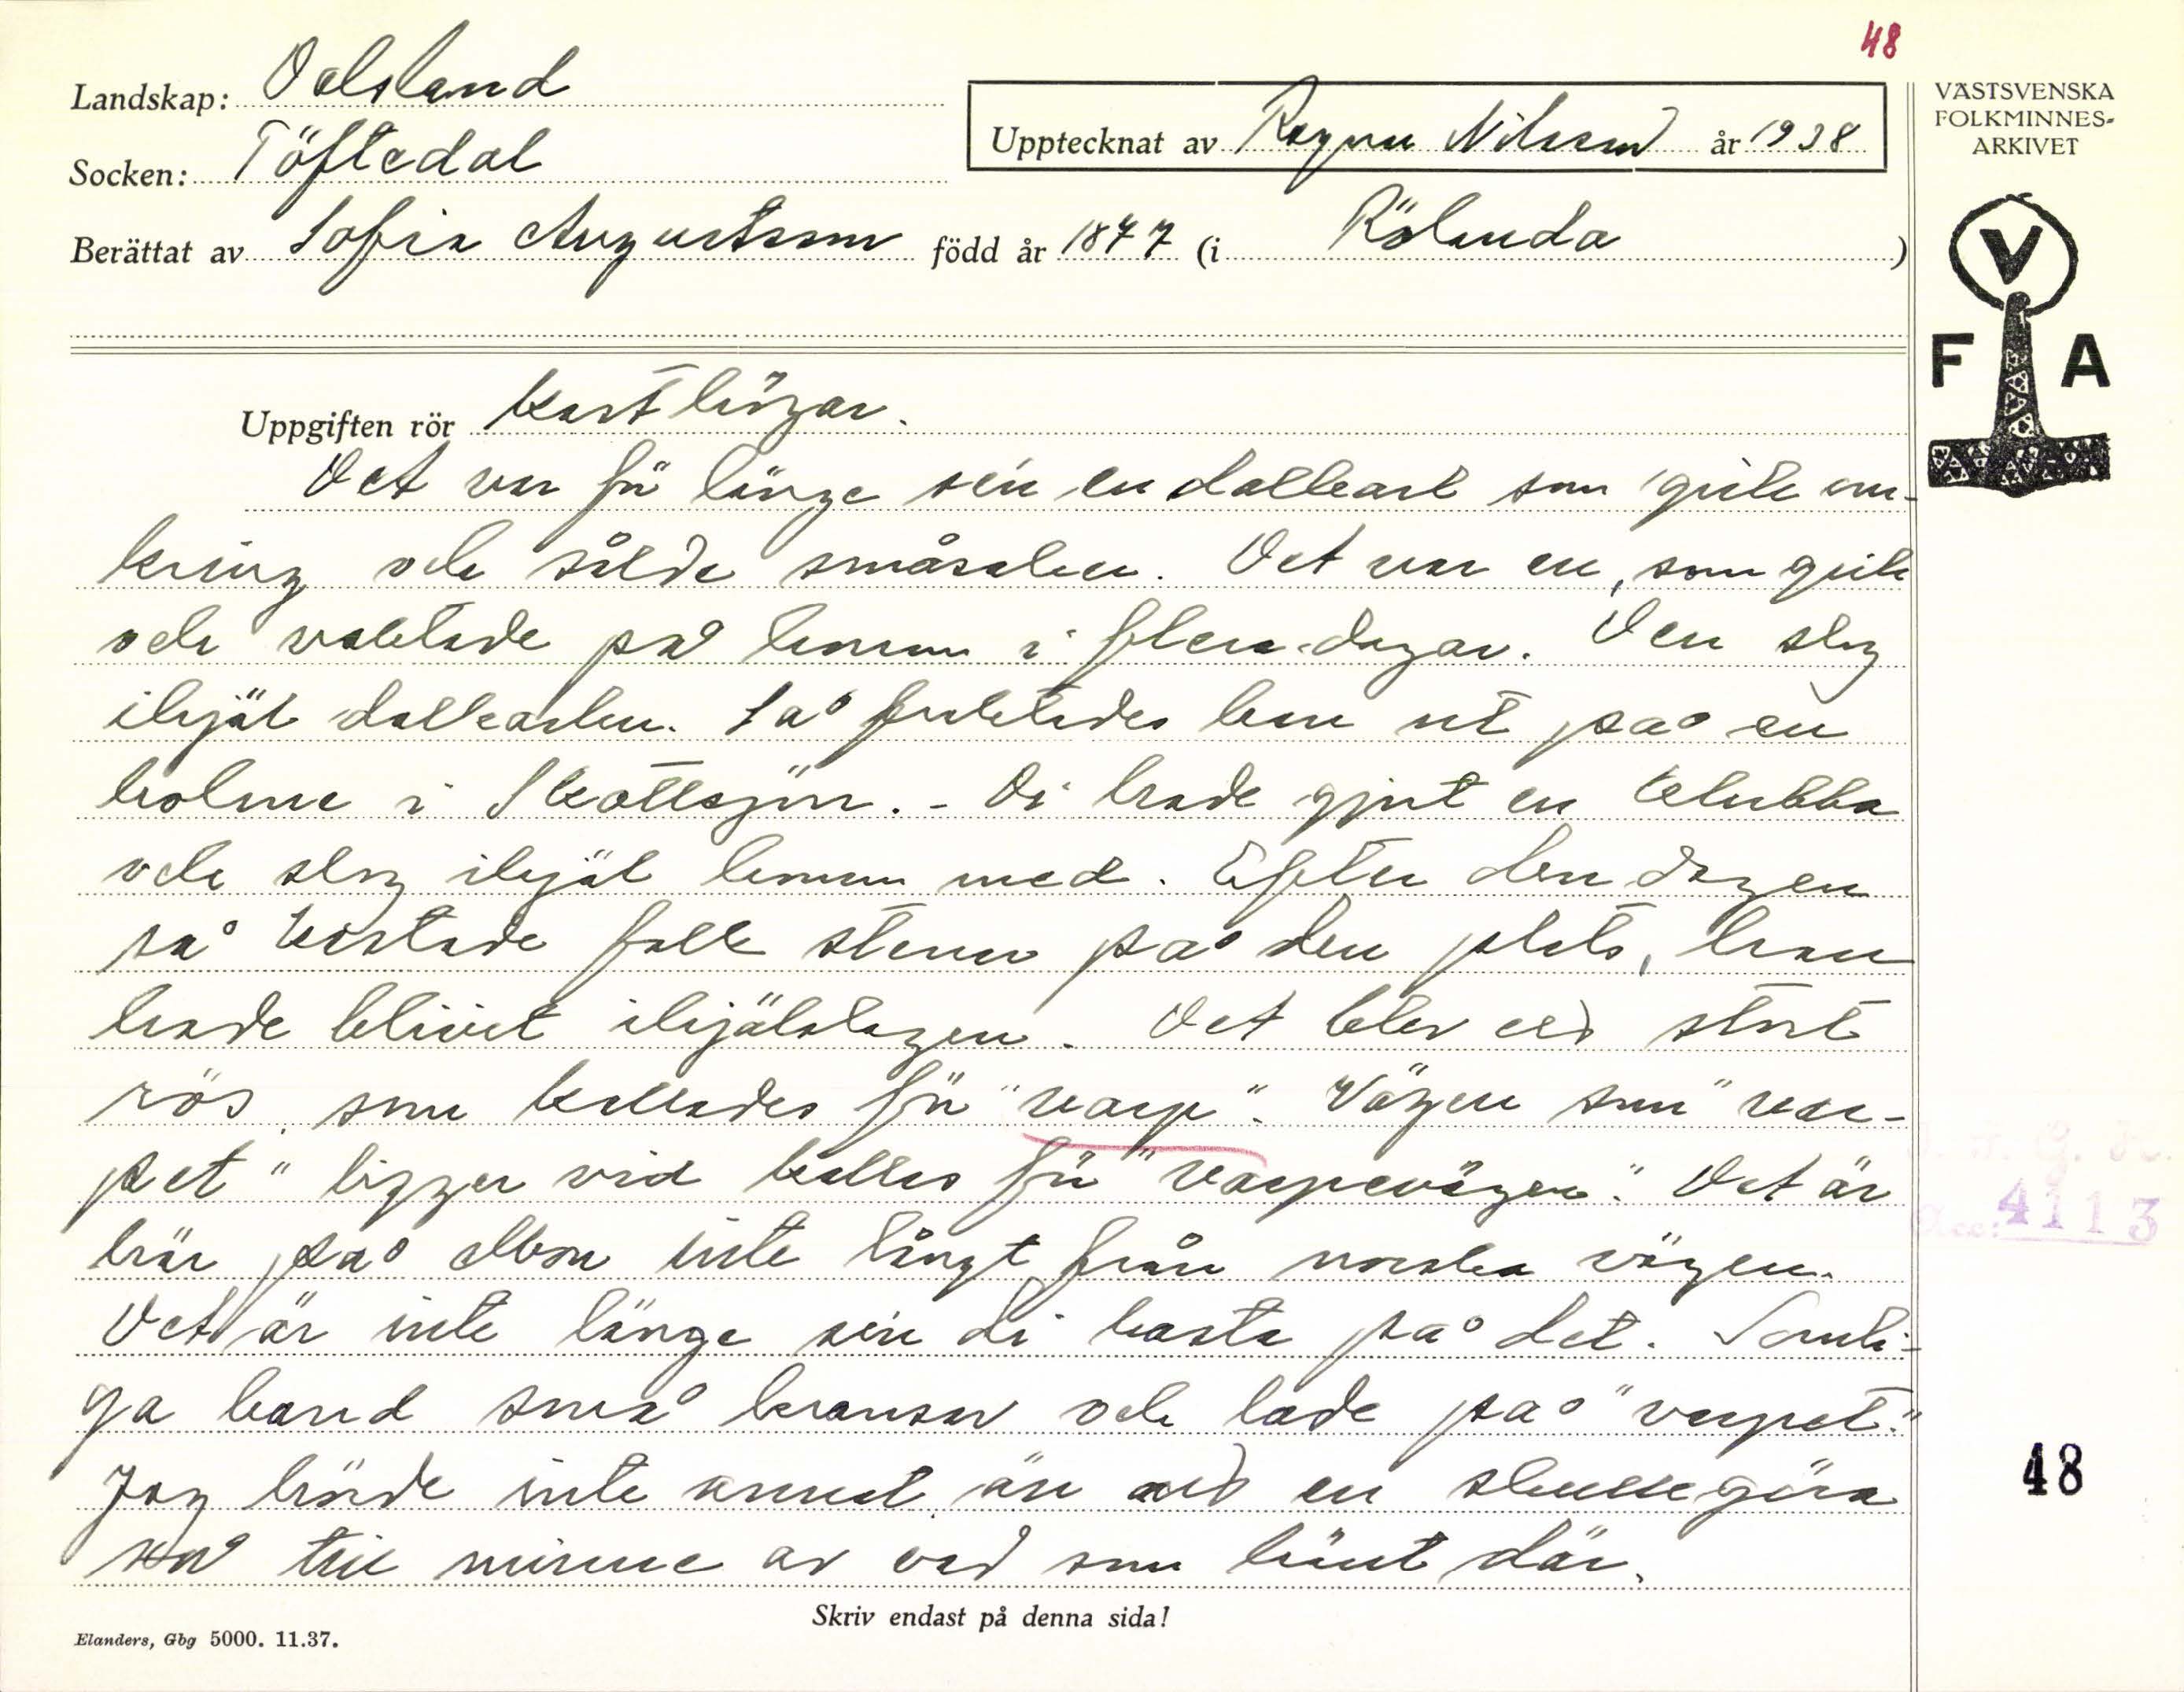 48
Landskap: Dalsland
Socken: Töftedal
Upptecknat av Ragnar Nilsson år 1938
Berättat av Sofia Augustsson född år 1877 (i Rölanda)
VÄSTSVENSKA
FOLKMINNES-
ARKIVET
V
F A
Uppgiften rör Kasthögar.
Det var för länge sén en dalkarl som gick om-
kring och sålde småsaker. Det var en, som gick
och vaktade på honom i flera dagar. Den slog
ihjäl dalkarlen. Så fraktades han ut på en
holme i Skottsjön. - Di hade gjort en klubba
och slog ihjäl honom med. Efter den dagen
så kastade folk stenar på den plats, han
hade blivit ihjälslagen. Det blev ett stort
rös, som kallades för "varp". Vägen som "var-
pet" ligger vid kallas för "varpevägen". Det är
här på Mon inte långt från norska vägen.
Det är inte länge sén di kasta på det. Somli-
ga band små kransar och lade på "varpet."
Jag hörde inte annat, än att en skulle göra
så till minne av vad som hänt där.
4113
48
Skriv endast på denna sida!
Elanders, Gbg 5000. 11.37.